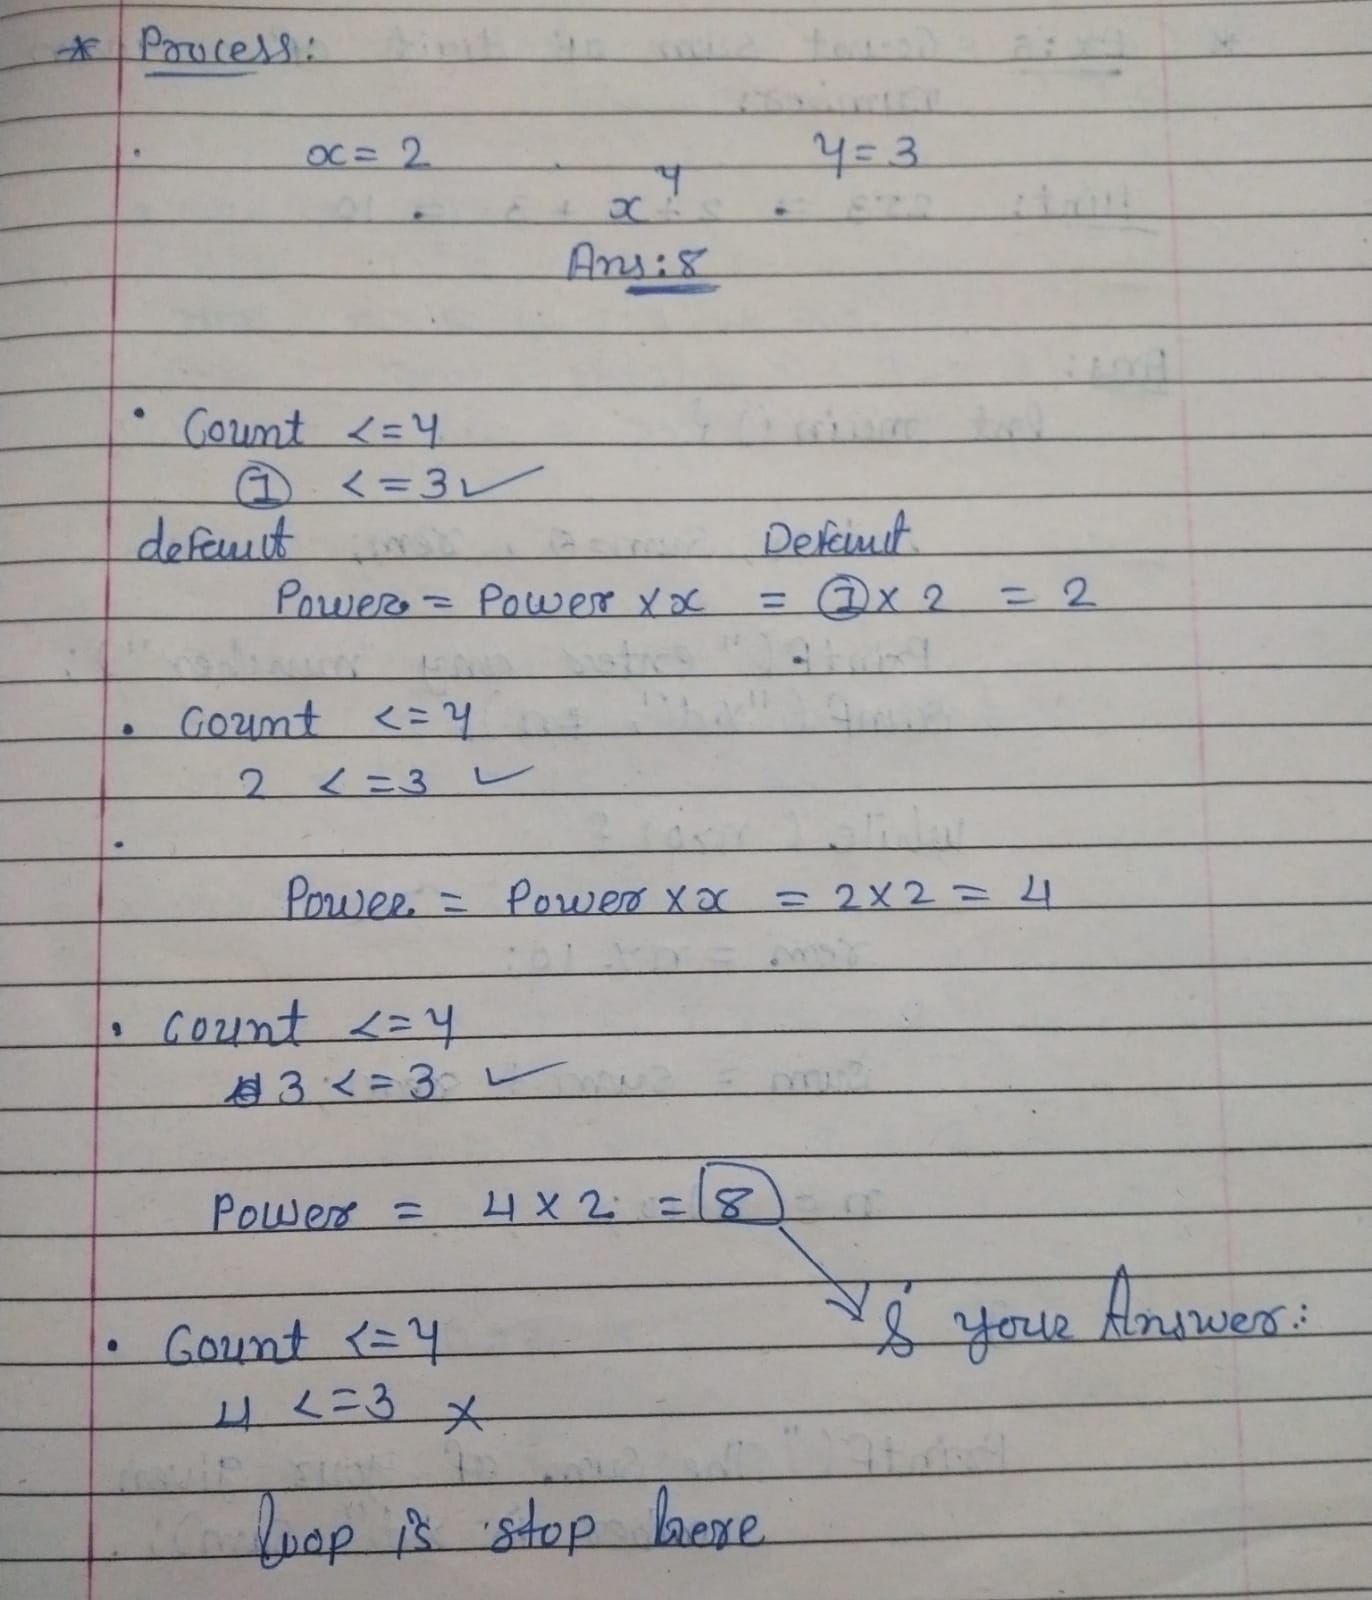 * Process:
x = 2 y = 3
x^y
Ans: 8
• Count <= y
① <= 3 ✓
default Default
Power = Power × x = ① × 2 = 2
• Count <= y
2 <= 3 ✓
Power = Power × x = 2 × 2 = 4
• Count <= y
3 <= 3 ✓
Power = 4 × 2 = 8
8 your Answer:
• Count <= y
4 <= 3 ×
loop is stop here